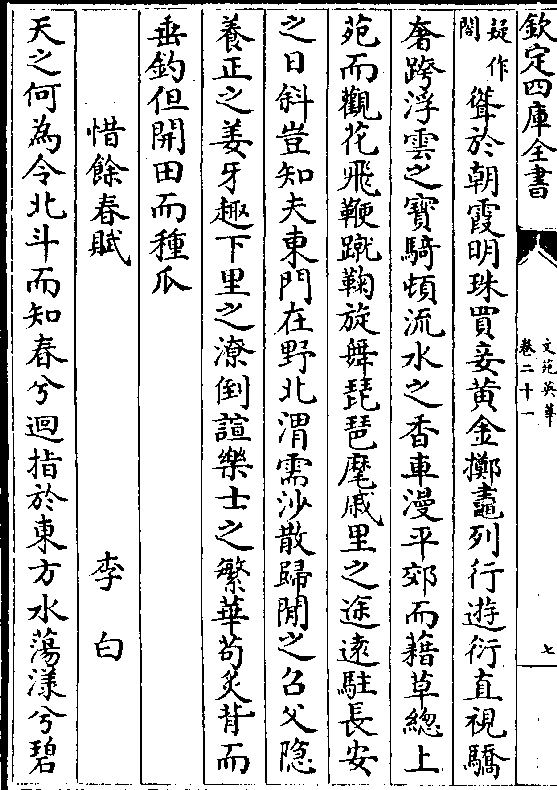 欽定四庫全書
文苑英華
卷二十一
七
疑作
閣
聳於朝霞明珠買妾黄金擲盡列行遊衍直視驕
奢跨浮雲之寶騎頓流水之香車漫平郊而藉草總上
苑而觀花飛鞭蹴鞠旋舞琵琶麾戚里之途遠駐長安
之日斜豈知夫東門在野北渭需沙散歸閒之召父隐
養正之姜牙趣下里之潦倒諠樂士之繁華苟炙背而
垂釣但開田而種瓜
惜餘春賦
李白
天之何為令北斗而知春兮迴指於東方水蕩漾兮碧